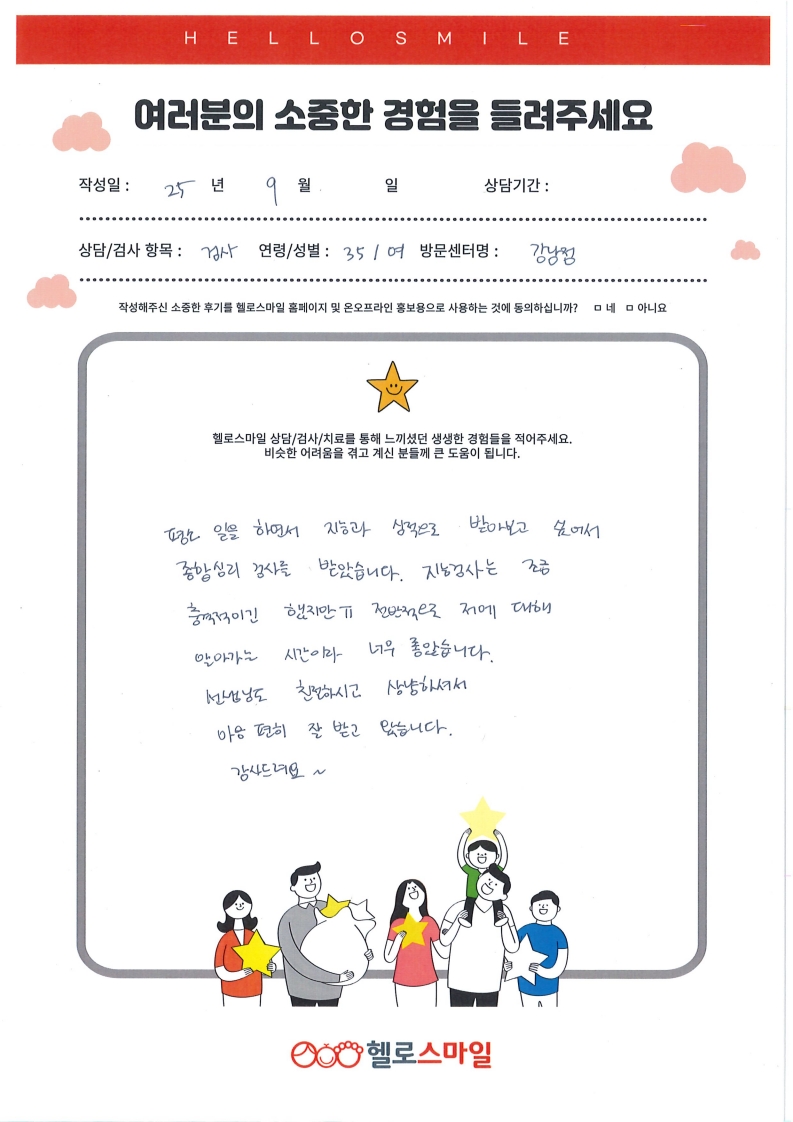 HELLOSMILE
여러분의 소중한 경험을 들려주세요
작성일 : 25 년 9 월 일 상담기간 :
상담/검사 항목 : 검사 연령/성별 : 35 / 여 방문센터명 : 강남점
작성해주신 소중한 후기를 헬로스마일 홈페이지 및 온오프라인 홍보용으로 사용하는 것에 동의하십니까? ㅁ 네 ㅁ 아니요
헬로스마일 상담/검사/치료를 통해 느끼셨던 생생한 경험들을 적어주세요.
비슷한 어려움을 겪고 계신 분들께 큰 도움이 됩니다.
평소 일을 하면서 지능과 심적으로 받아보고 싶어서
종합심리 검사를 받았습니다. 지능검사는 조금
충격적이긴 했지만ㅠ 전반적으로 저에 대해
알아가는 시간이라 너무 좋았습니다.
선생님도 친절하시고 상냥하셔서
마음 편히 잘 받고 왔습니다.
감사드려요 ~
헬로스마일